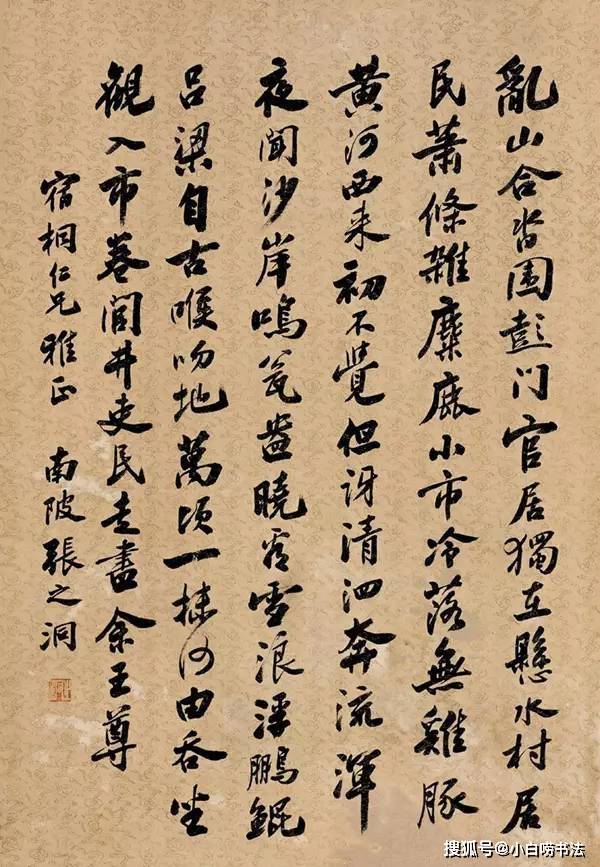 亂山合沓圍彭门官居獨在懸水村居
民蕭條雜麋鹿小市冷落無雞豚
黃河西来初不覺但訝清泗奔流渾
夜聞沙岸鳴瓮盎曉看雪浪浮鵬鯤
呂梁自古喉吻地萬頃一抹何由吞坐
觀入市卷閭井吏民走盡余王尊
宿桐仁兄雅正 南陂張之洞
搜狐号@小白唠书法